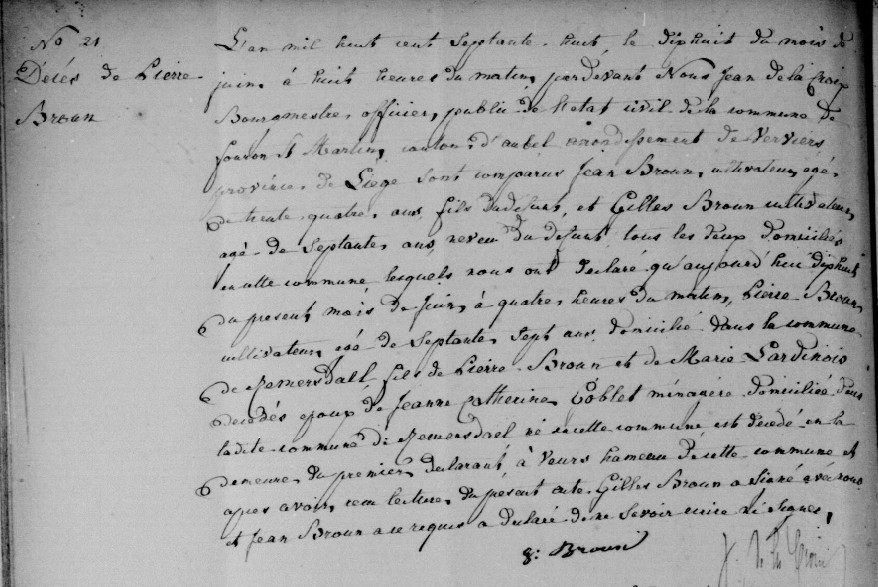 No 21
Décés de Pierre
Broun
L'an mil huit cent septante-huit, le dixhuit du mois de
juin, à huit heures du matin, pardevant Nous Jean de la Croix
Bourgmestre, officier public de l'etat civil de la commune de
fouron St Martin, canton d'aubel arrondissement de Verviers,
province de Liège sont comparus Jean Broun, cultivateur, agé
de trente quatre ans, fils du defunt, et Gilles Broun cultivateur,
agé de septante ans, neveu du defunt, tous les deux domiciliés
en cette commune, lesquels nous ont declaré qu'aujourd'hui dixhuit
du present mois de Juin, à quatre heures du matin, Pierre Broun,
cultivateur, agé de septante sept ans, domicilié dans la commune
de Remersdall fils de Pierre Broun et de Marie Lardinois
decedés epoux de Jeanne Catherine Goblet ménagère domiciliée dans
ladite commune de Remersdael né en cette commune est decedé en la
demeure du premier declarant, à Veurs hameau de cette commune et
apres avoir, reçu lecture, du present acte. Gilles Broun a signé avec nous
et Jean Broun a ce requis a declaré de ne savoir ecrire ni signer,
g: Broun
J. de la Croix